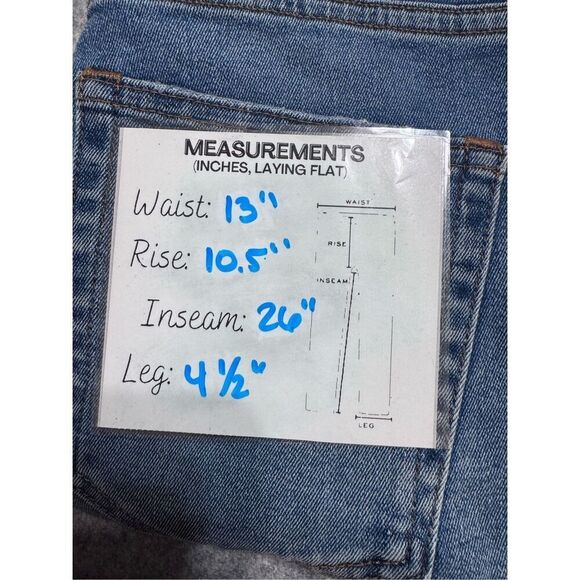 MEASUREMENTS
(INCHES, LAYING FLAT)
Waist: 13"
Rise: 10.5"
Inseam: 26"
Leg: 4 ½"
WAIST
RISE
INSEAM
LEG